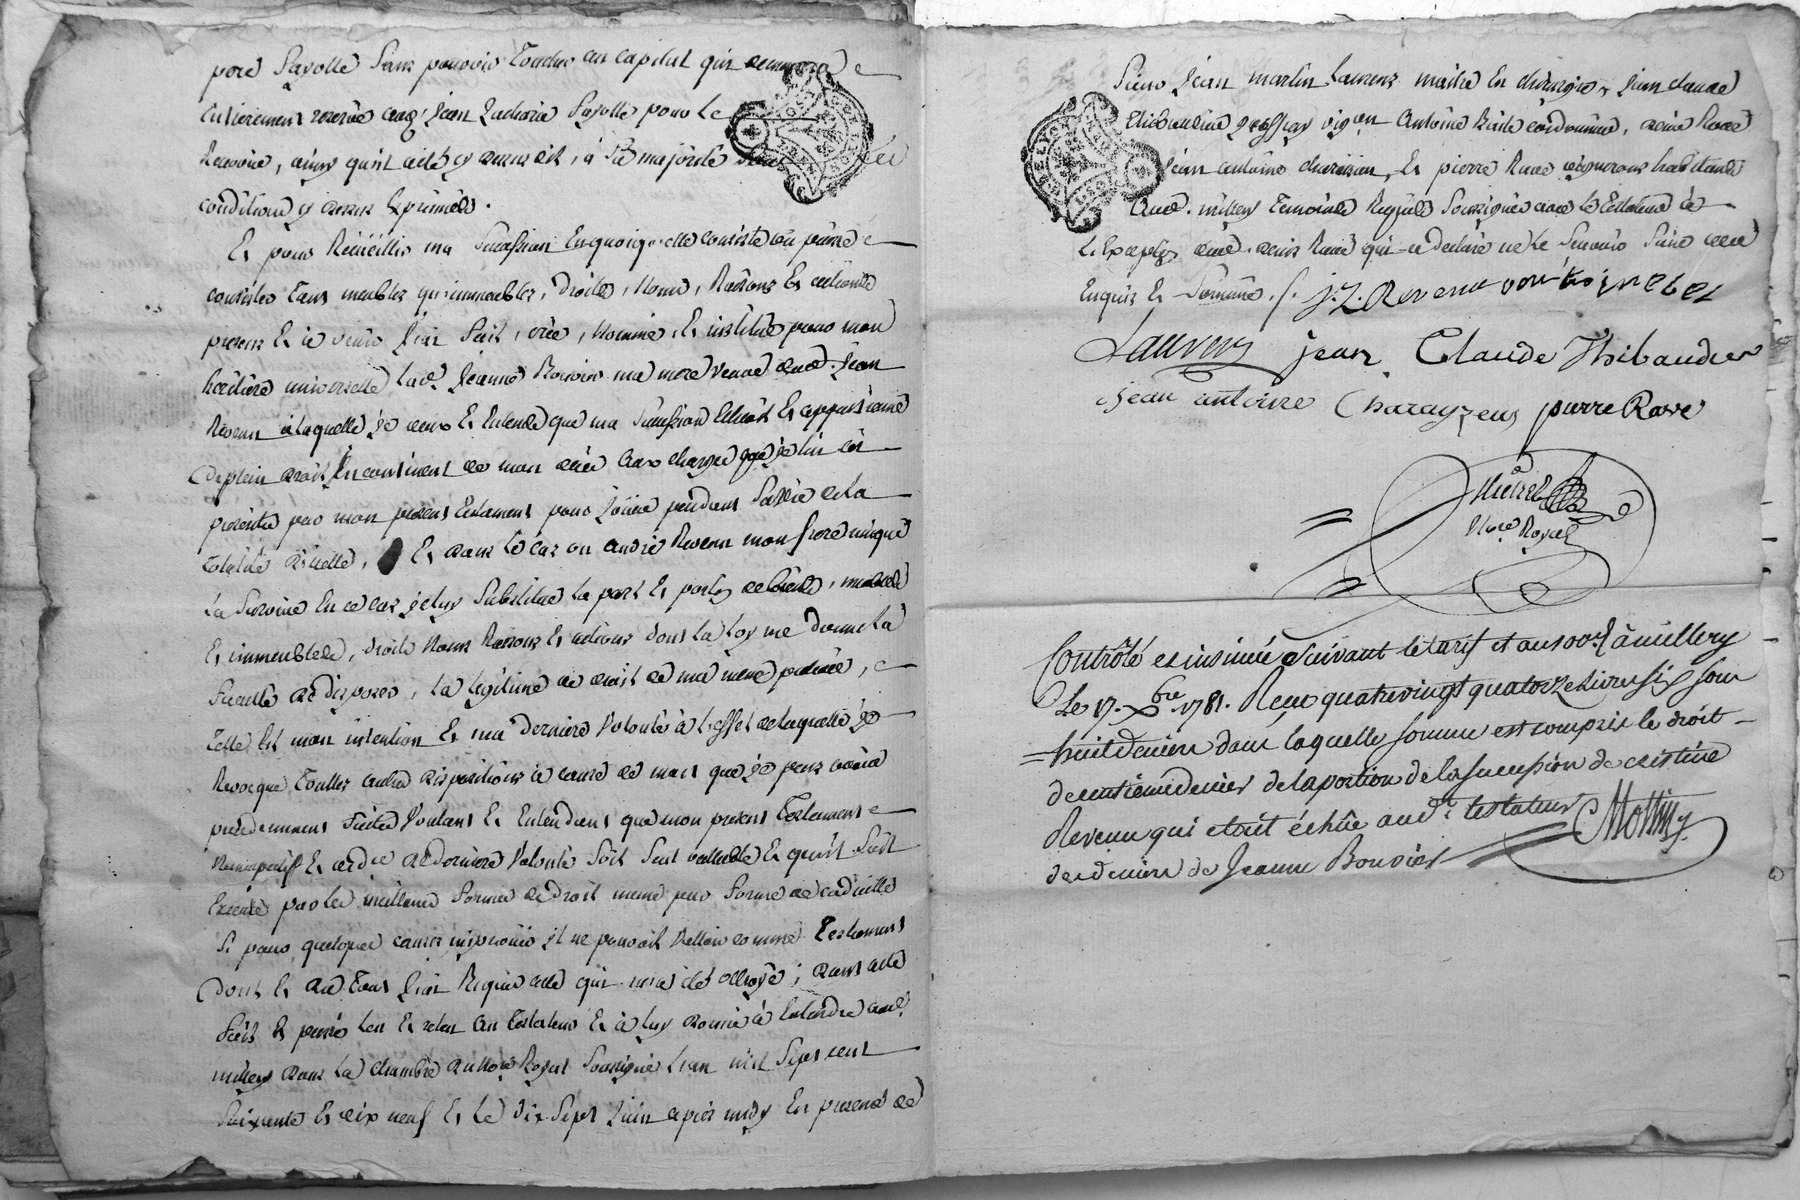 père Payolle sans pouvoir toucher au capital qui demeurera
entierement reservé aud. Jean Zacharie Payolle pour le
Recevoir, ainsy qu'il a été cy dessus dit, à sa majorité sous les
conditions cy dessus Exprimées.
Et pour Recüeillir ma Succession En quoi qu'elle consiste ou puisse
consister tant meubles qu'immeubles, droits, Noms, Raisons Et actions
présens Et à venir J'ai fait, créé, Nommé, Et institué pour mon
héritière universelle lad. Jeanne Bouvier ma mere veuve dud. Jean
Revenu à laquelle je veux Et Entends que ma Succession Echoit Et appartienne
de plein droit Incontinent de mon décès aux charges que je lui ai
présentes par mon présent testament pour Joüir pendant sa vie de la
totalité d'icelle, Et dans le cas ou andré Revenu mon frere unique
la survive En ce cas je luy substitue la part Et portion de biens, meubles
Et immeubles, droits Noms Raisons Et actions dont la loy me donne la
faculté de disposer, la legitime de droit de ma mere prélevée,
telle Est mon intention Et ma derniere volonté à l'effet de laquelle je
Revoque touttes autres dispositions à cause de mort que je peux avoir
précédemment faites Voulant Et Entendant que mon present testament
Nuncupatif Et ordre de derniere Volonté soit seul vallable Et qu'il soit
Executé par les meilleures formes de droit meme par forme de codicille
si pour quelques causes imprevües il ne pouvoit valloir comme testament
Dont Et du tout J'ai Requis acte qui m'a été octroyé; dont acte
fait Et passé leu Et releu au testateur Et à luy donné à Entendre aud.
millery dans la chambre du Nore Royal soussigné L'an mil sept cent
soixante Et dix neuf Et le dix sept Juin apres midy En presence de
Sieur Jean martin Laurens maitre En chirurgie, Jean claude
thibaudier, antoine cordonnier, denis Rave
Jean antoine charaizain, Et pierre Rave vignerons habitants
aud. millery temoins Requis Soussignés avec le testateur à
l'Exception dud. denis Rave qui a declaré ne le sçavoir faire de ce
Enquis Et Sommé. J. Z. Revenu
Laurens jean Claude Thibaudier
jean antoine Charayzens pierre Rave
Nore Royal
Controlé et insinué suivant le tarif et au 100e. à millery
Le 17. Xbre. 1781. Reçu quatrevingt quatorze livres six sous
huit deniers dans laquelle somme est compris le droit
de centieme denier de la portion de la succession de cristine
Revenu qui etoit échüe aud. testateur
des deniers de Jeanne Bouvier